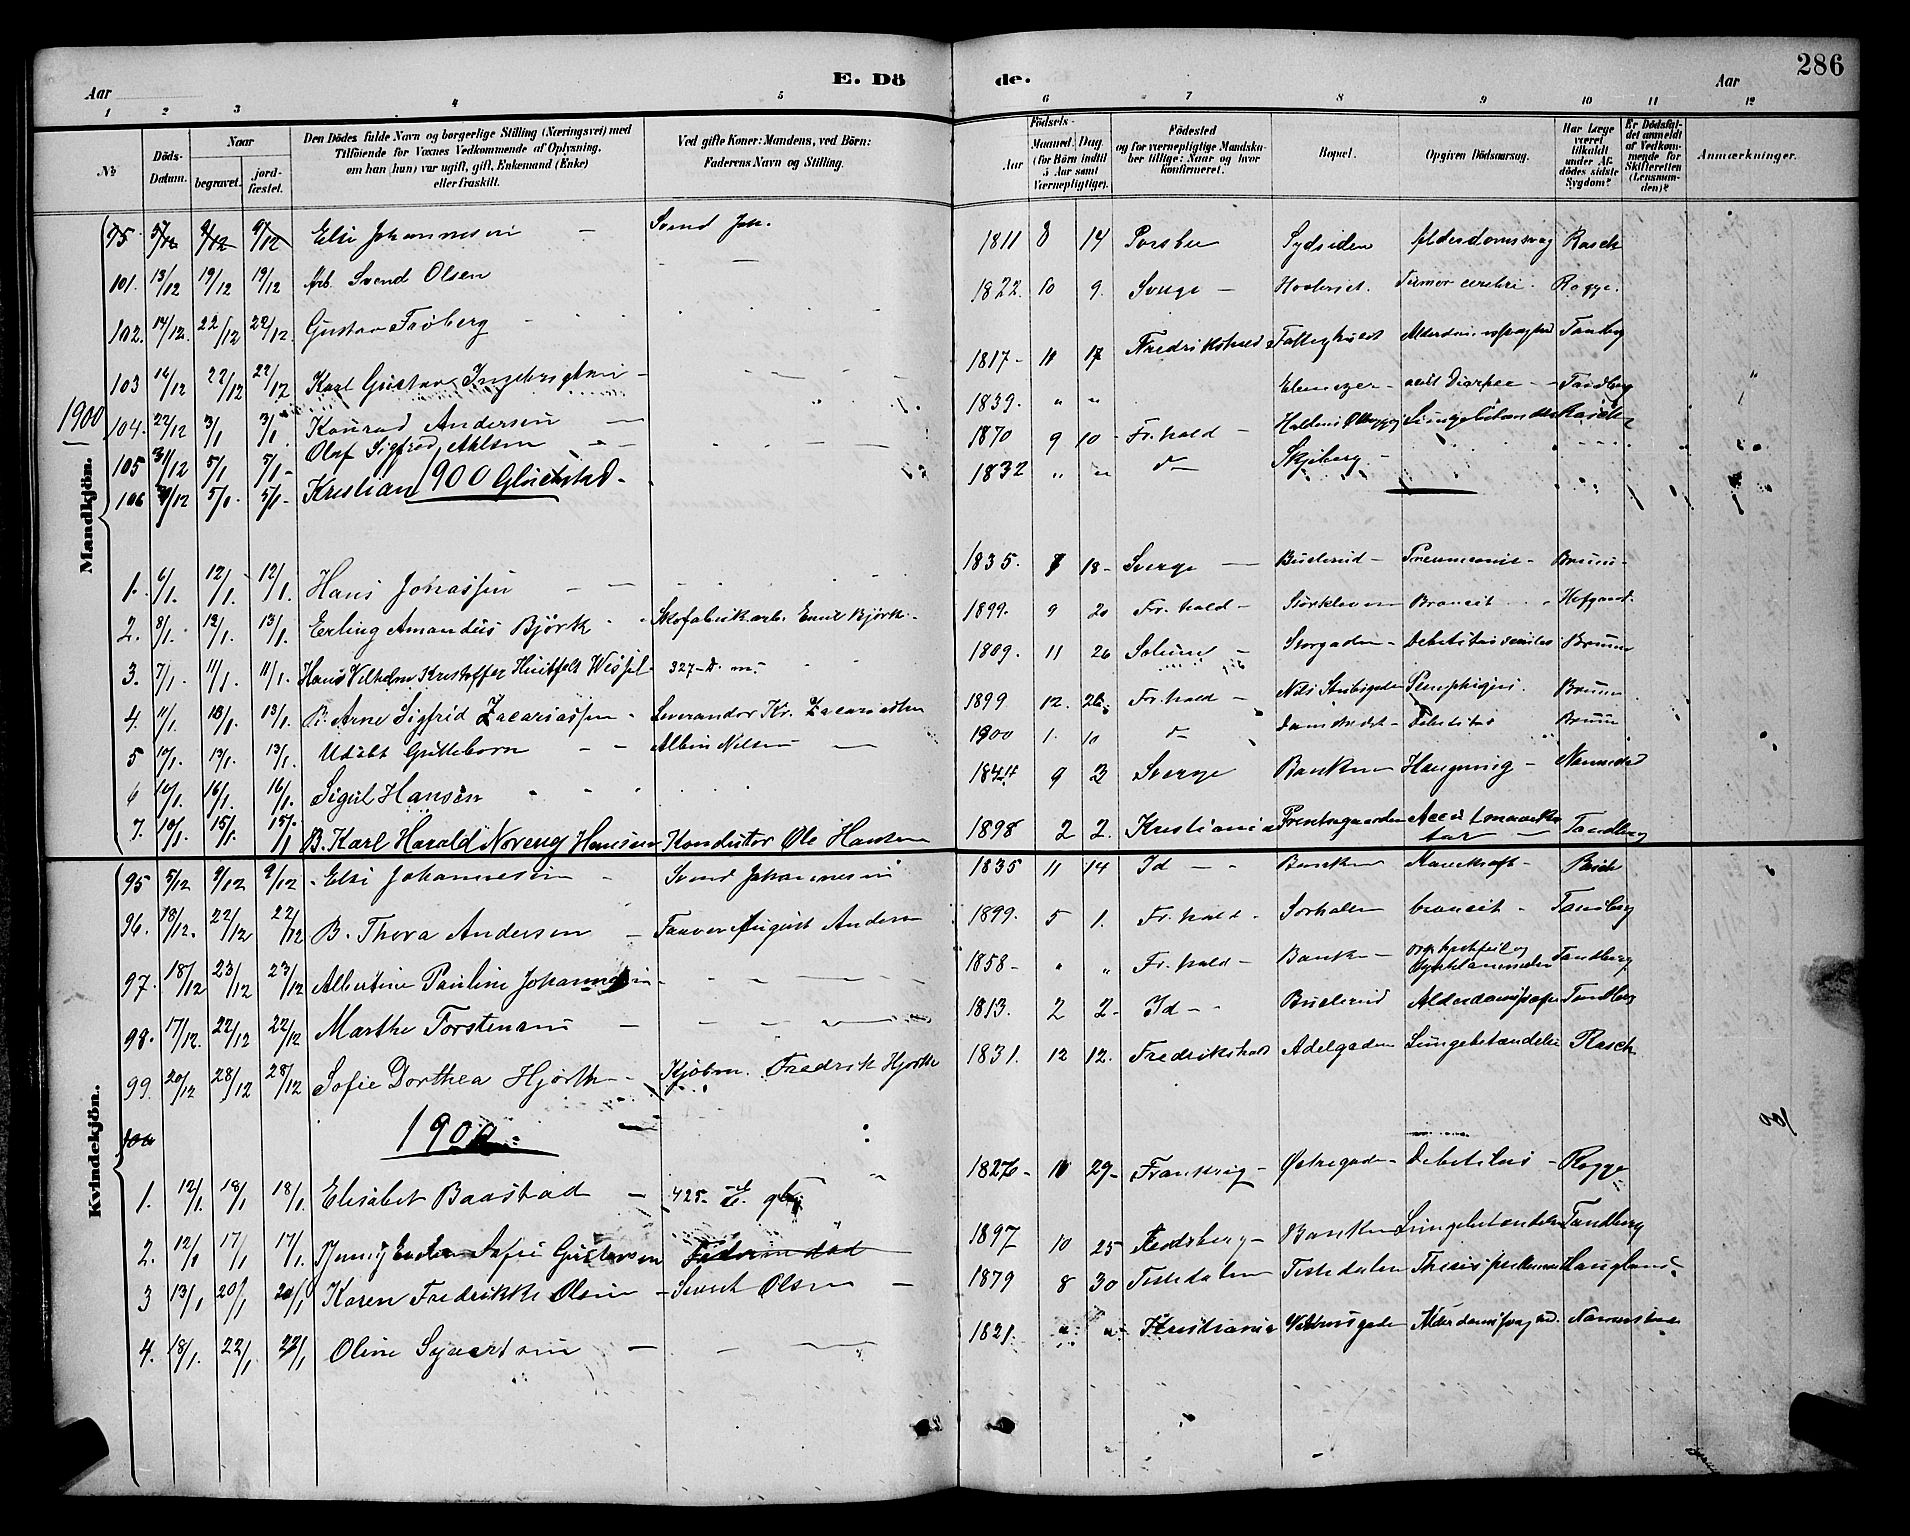 286
E. Dö de.
Aar Aar
1 2 3 4 5 6 7 8 9 10 11 12
No
Döds-Datum.
Naar
begravet.
jordfæstet.
Den Dödes fulde Navn og borgerlige Stilling (Næringsvei) med
Tilföiende for Voxnes Vedkommende af Oplysning,
om han (hun) var ugift, gift, Enkemand (Enke)
eller fraskilt.
Ved gifte Koner: Mandens, ved Börn:
Faderens Navn og Stilling.
Födsels-
Aar
Maaned. Dag.
(for Börn indtil
5 Aar samt
Værnepligtige).
Födested
og for værnepligtige Mandska-
ber tillige: Naar og hvor
konfirmeret.
Bopæl.
Opgiven Dödsaarsag.
Har Læge
været
tilkaldt
under Af-
dödes sidste
Sygdom?
Er Dödsfal-
det anmeldt
af Vedkom-
mende for
Skifteretten
(Lensman-
den)?
Anmærkninger.
Mandkjön.
1900
95 5/12 9/12 9/12 Elsi Johannesen - Svend Joh. 1811 8 14 Sydsiden Alderdomssvag Rasch
101. 13/12 19/12 19/12 Arb. Svend Olsen 1822. 10 9. Sverge - Tumor cerebri. Rogge.
102. 14/12. 22/12 22/12. Gustav Froberg 1817- 11 17 Fredrikshald Fattighuset Tandberg
103 14/12 22/12 22/12 Karl Gustav Ingebrigtsen - 1839. " " Ebenezer - acut Diarhee - Tandberg
104. 22/12 3/1 3/1. Konrad Andersen 1870 9 10 - Fr.hald - Lungebetændelse Rasch
105 31/12 5/1 5/1- Olaf Sigfred Ahlsen 1832 " " d- Skjeberg -
106 5/1. 5/1- Kristian Glückstad.
1900
1. 6/1. 12/1. 12/1. Hans Johnassen 1835. 18- Sverge - Buslerud - Pneumonie - Bruun-
2. 8/1. 12/1. 13/1. Erling Amandus Björk - Skofabrikarb. Emil Björk. 1899. 9 20 Fr.hald - Bronkit
3. 7/1. 11/1. 11/1. Hans Vilhelm Kristoffer Huitfelt Wissel - 327- D. m- 1809. 11 26 Solum - Storgaden - Debilitas senilis Bruun
4. 11/1. 13/1. 13/1. B. Arne Sigfrid Zacariassen - Leverandør Kr. Zacariassen 1899 12. 26. Fr.hald - Pemphigus. Bruun
5 10/1. 13/1. 13/1. Udöbt Guttebarn - - Albin Nilsen 1900 1. 10 d- Damstedet - Debilitas Bruun
6 10/1. 16/1. 16/1. Sigul Hansen 1844 9 3 Sverge Banken Hængning - Nannestad
7. 10/1. 15/1. 15/1 B. Karl Harald Noreng Hansen Konduktør Ole Hansen 1898 2 2. Kristiania Prestegaarden Tandberg
Kvindekjön.
95 5/12 9/12 9/12 - Elsi Johannesen Svend Johannesen 1835 11 14 Id - - Banken Mavekræft - Rasch
96. 18/12. 22/12 22/12 B. Thora Andersen - August Andersen 1899. 5 1. Fr.hald - Sørhalen bronkit - Tandberg
97. 18/12 23/12 23/12 Albertine Pauline Johannesen - 1858 - " " Fr.hald - Banken - org. hjertefeil og Tandberg
98. 17/12. 22/12 22/12 Marthe Torstensen - 1813. 2 2- Id - - Buslerud Tandberg
99. 20/12 28/12 28/12 Sofie Dorthea Hjorth - Kjøbm. Fredrik Hjorth 1831. 12 12. Fredrikshald Adelgaden Lungebetændelse Rasch
100
1900.
1. 12/1. 18/1 18/1. Elisabet Baastad - 425- E. glb 1826 - 11 29- Frankrig - Østregaden - Debilitas - Rogge
2. 12/1 17/1 17/1. Sofie Gustavsen Faderen död 1897 10 25 - Banken Lungebetændelse Tandberg
3 13/1 20/1 20/1 Karen Fredrikke Olsen - Olsen - 1879 8 30 Tistedalen Tistedalen Haugland
4. 18/1. 22/1 22/1 Oline Syvertsen - 1821. " "- Kristiania Nannestad
100